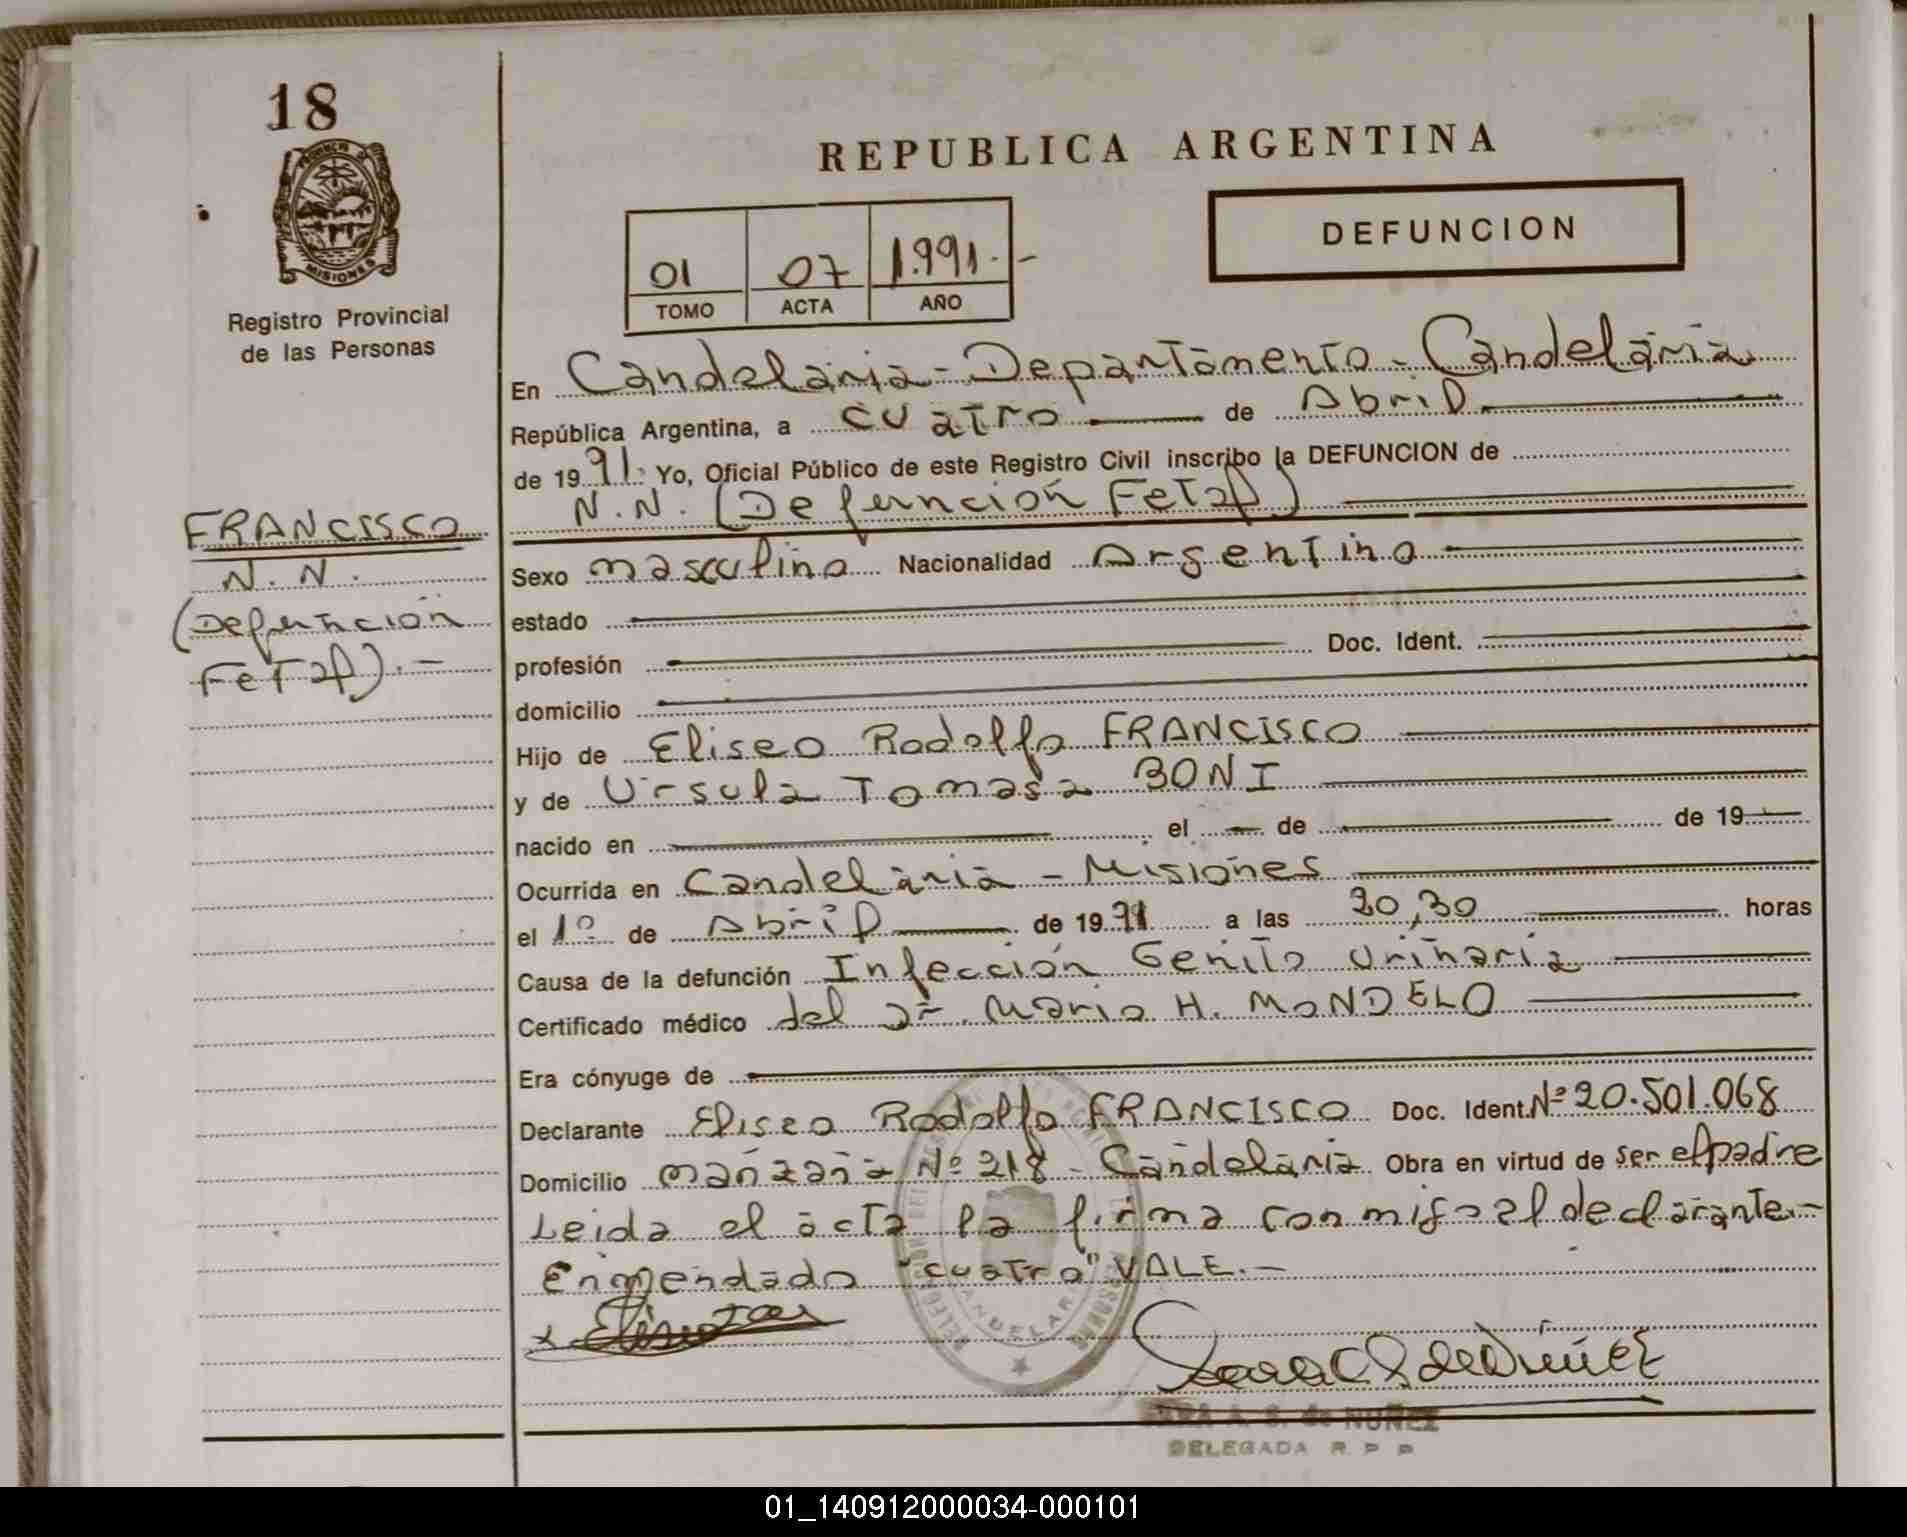 18
PROVINCIA DE
MISIONES
Registro Provincial
de las Personas
FRANCISCO
N. N.
(Defunción
Fetal).-
REPUBLICA ARGENTINA
DEFUNCION
01 07 1.991.-
TOMO ACTA AÑO
En Candelaria - Departamento - Candelaria
República Argentina, a cuatro de Abril
de 1991. Yo, Oficial Público de este Registro Civil inscribo la DEFUNCION de
N.N. (Defunción Fetal)
Sexo masculino Nacionalidad Argentino
estado
profesión Doc. Ident.
domicilio
Hijo de Eliseo Rodolfo FRANCISCO
y de Ursula Tomasa BONI
nacido en el de de 19
Ocurrida en Candelaria - Misiones
el 1º de Abril de 1991 a las 20,30 horas
Causa de la defunción Infección Genito Urinaria
Certificado médico del Dr. Mario H. MONDELO
Era cónyuge de
Declarante Eliseo Rodolfo FRANCISCO Doc. Ident. Nº 20.501.068
Domicilio manzana Nº 218 - Candelaria Obra en virtud de ser el padre
Leida el acta la firma conmigo el declarante.-
Enmendado "cuatro" VALE.-
SARA A. S. de NUÑEZ
DELEGADA R. P. P.
01_140912000034-000101